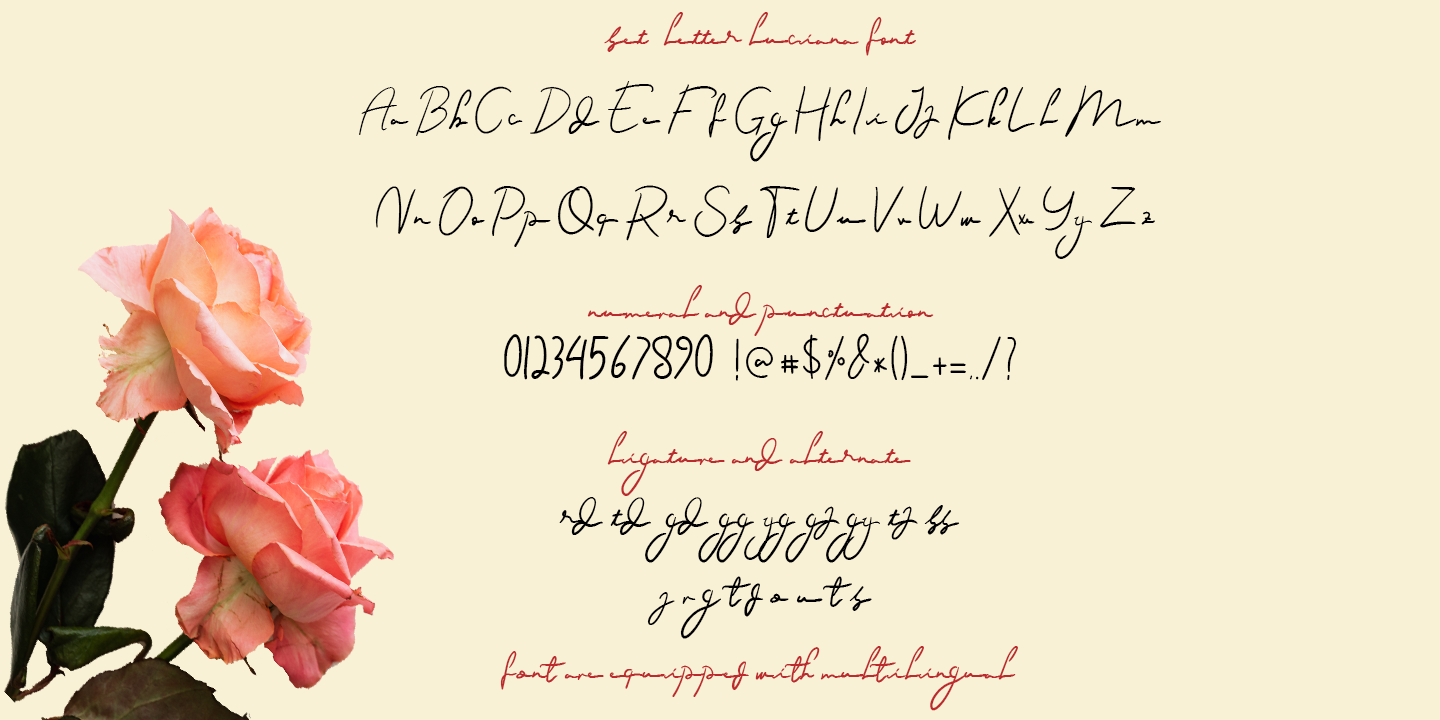 set letter luciana font
Aa Bb Cc Dd Ee Ff Gg Hh Ii Jj Kk Ll Mm
Nn Oo Pp Qq Rr Ss Tt Uu Vv Ww Xx Yy Zz
numeral and punctuation
01234567890 !@#$%&*()_+=../?
ligature and alternate
rd td gd gg yg gj gy tj ss
j r g t d o u t s
font are equipped with multilingual